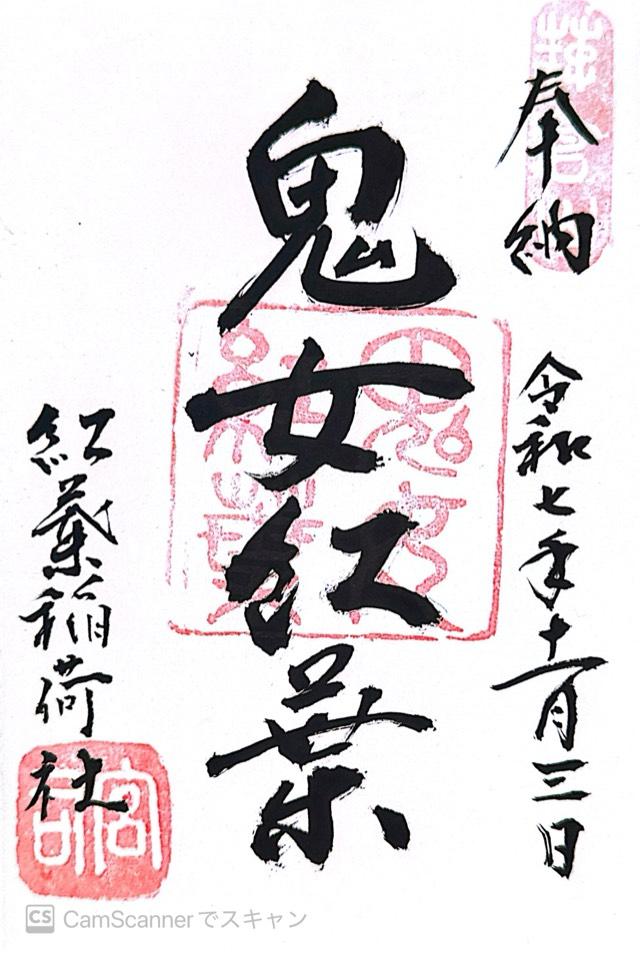 奉納
令和七年十一月三日
鬼女紅葉
紅葉稲荷社
CS CamScannerでスキャン